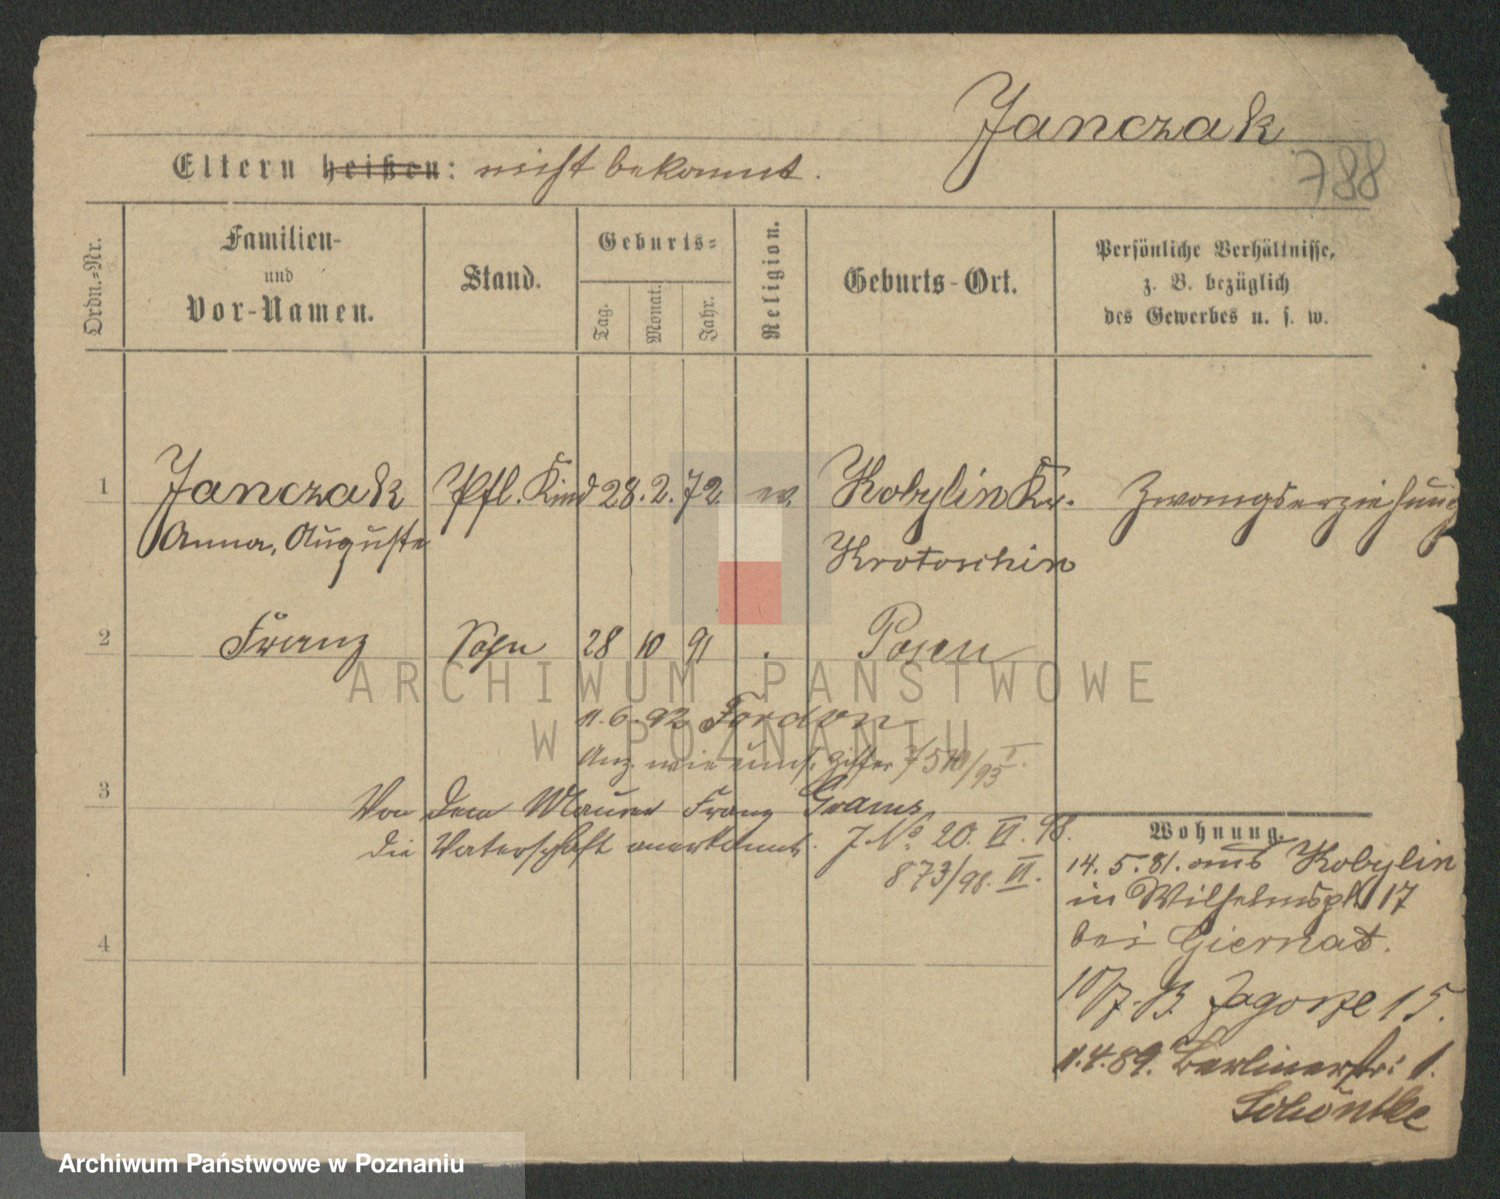 Janczak
788
Eltern heißen: nicht bekannt.
Ordn.-Nr.
Familien-
und
Vor-Namen.
Stand.
Geburts-
Tag.
Monat.
Jahr.
Religion.
Geburts-Ort.
Persönliche Verhältnisse,
z. B. bezüglich
des Gewerbes u. s. w.
1 Janczak Pfl. Kind 28. 2. 72 ev. Kobylin Kr. Zwangserziehung
Anna, Auguste Krotoschin
2 Franz Sohn 28 10 91 . Posen
ARCHIWUM PAŃSTWOWE
W POZNANIU
1. 6. 92 Fordon
Anz.
3
Von dem Maurer Franz Grams
die Vaterschaft anerkannt. J No. 20. VI. 98.
873/98. VI.
4
Wohnung.
14. 5. 81. aus Kobylin
in Wilhelmspl. 17
bei Giernat.
10/7. Zagorze 15.
1. 4. 89. Berlinerstr: 1.
Archiwum Państwowe w Poznaniu